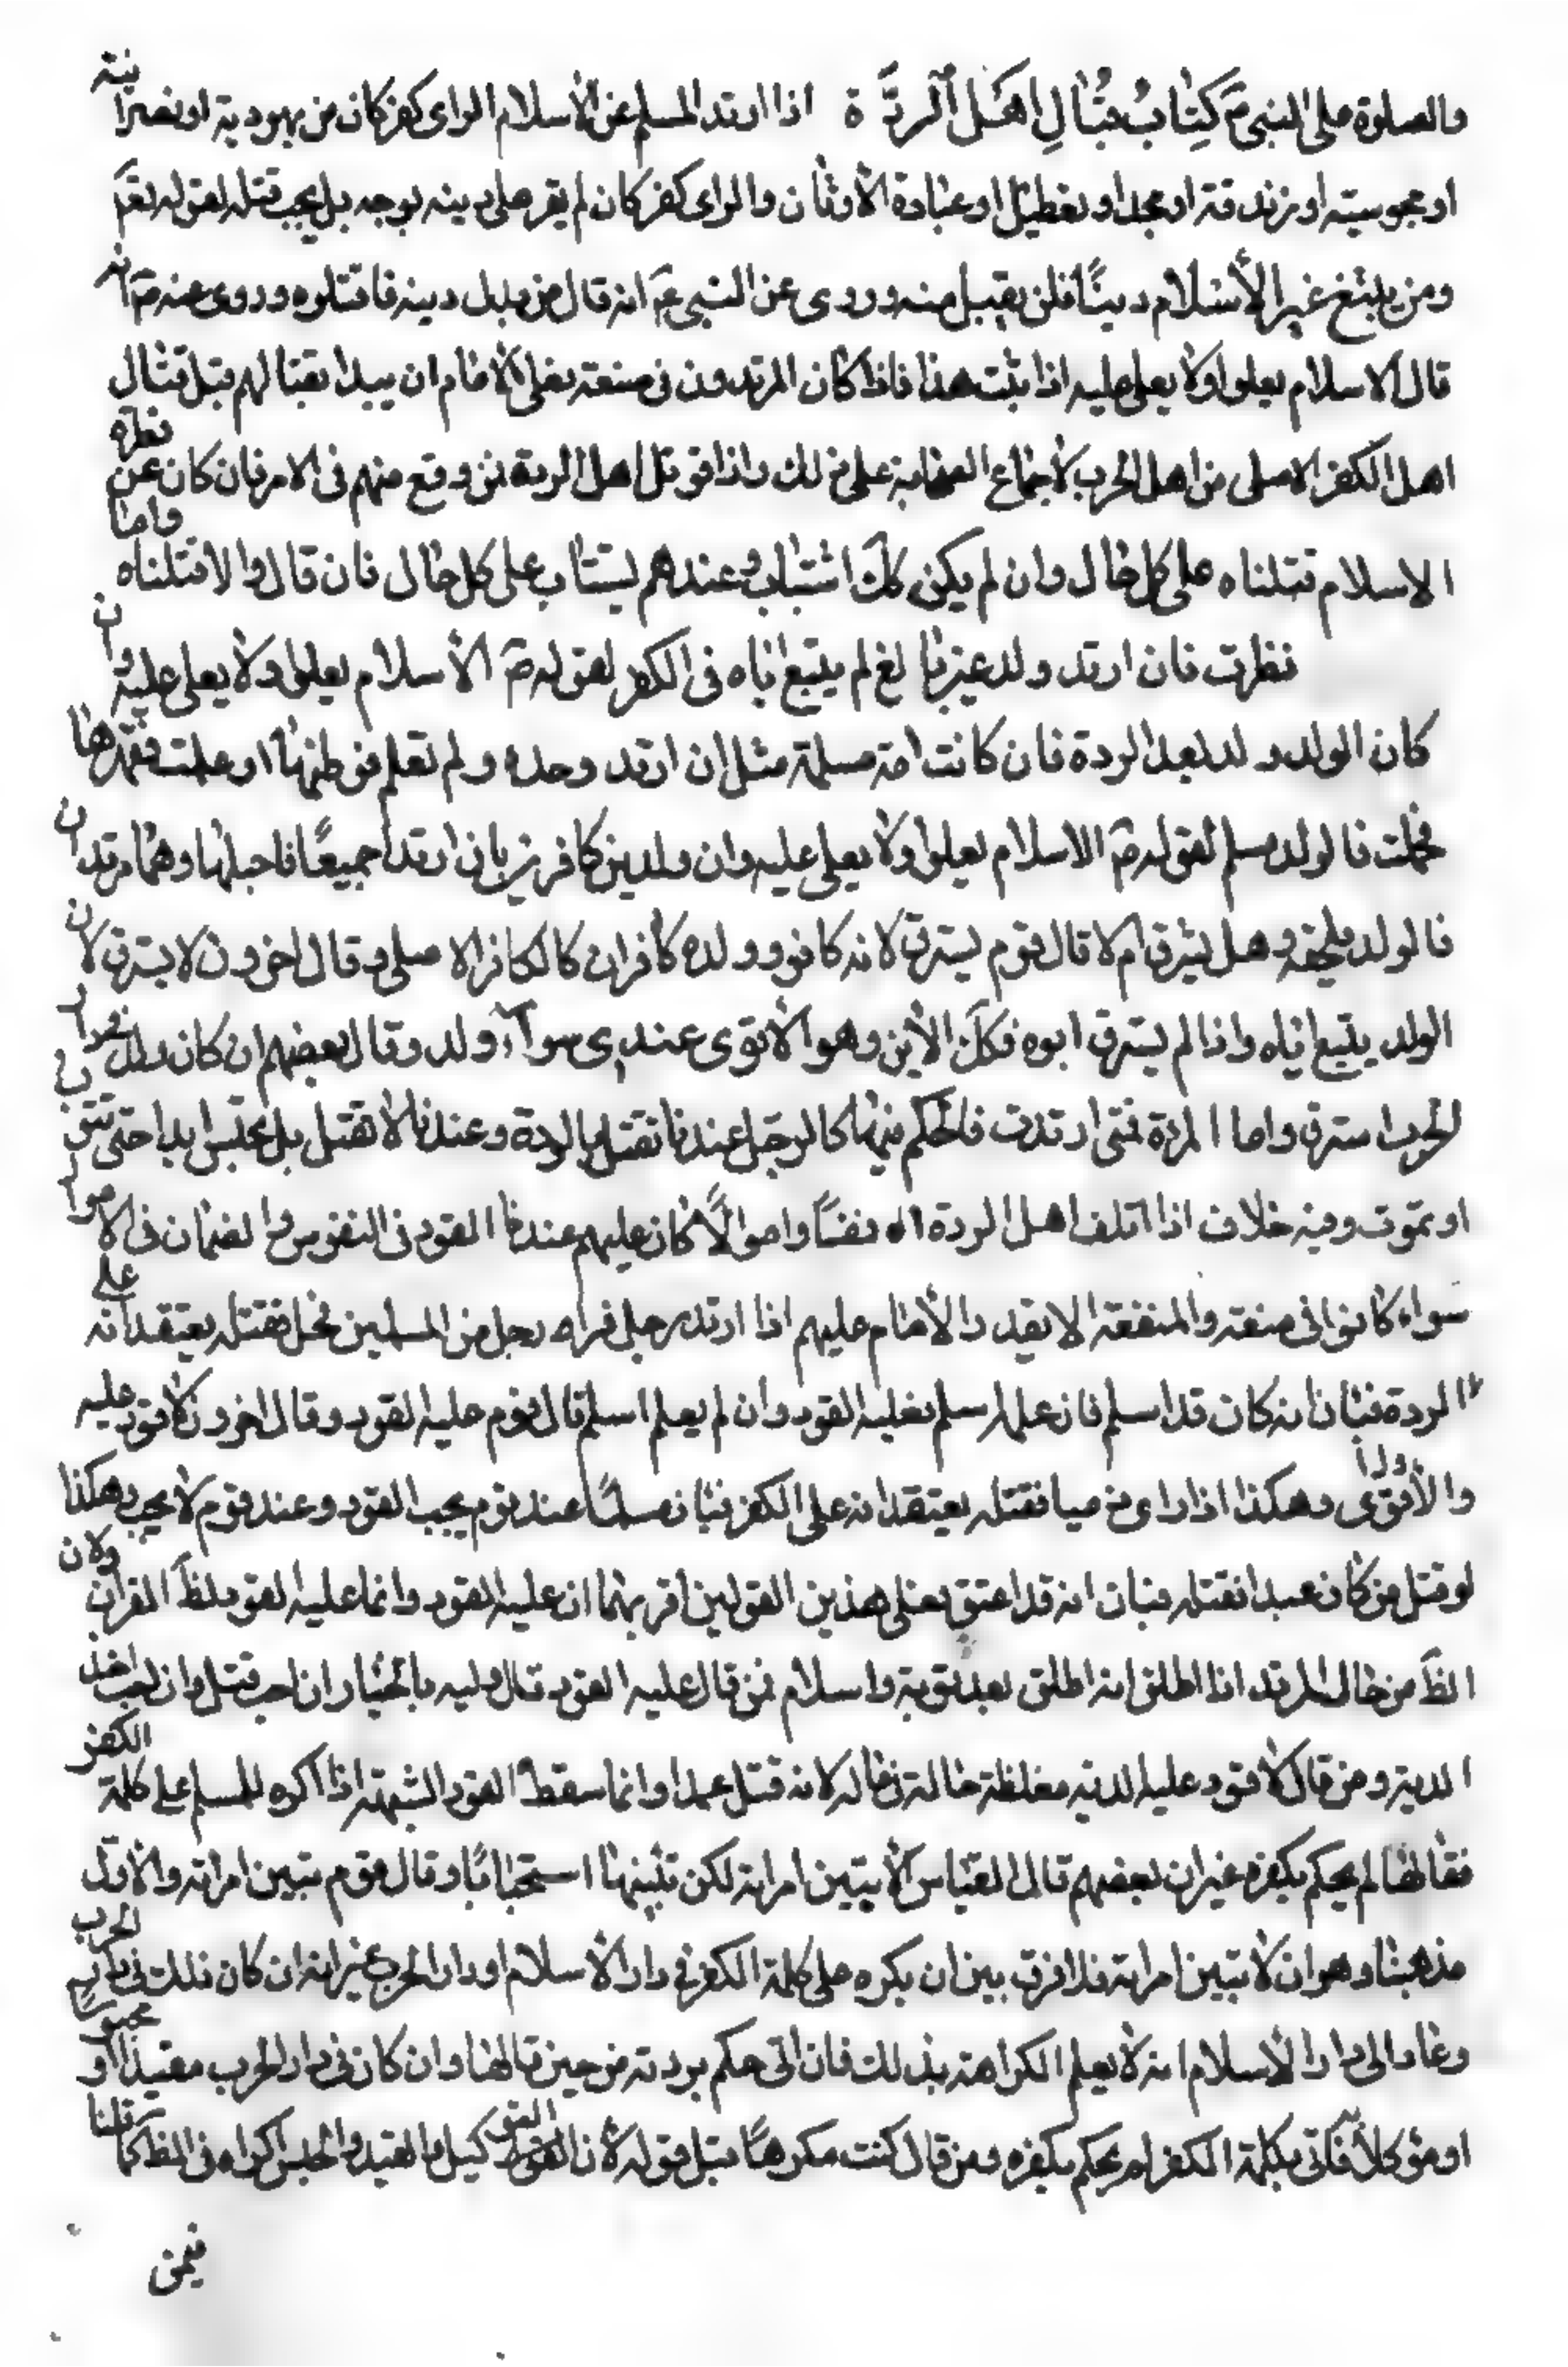 والصلوة على النبى ۴ كِتٰابُ قِتٰالِ اَهْلِ الرِدَّة اذا ارتد المسلم عن الأسلام الى اى كفر كان من يهودية او نصرانية
او مجوسيته او زندقة او جحد او تعطيل او عبادة الأوثان والى اى كفر كان لم يقر على دينه بوجه بل يجب قتله لقوله تعٓ
ومن يبتغ غير الأسلام دينًا فلن يقبل منه وروى عن النبى عٓم انه قال من بدل دينه فاقتلوه وروى عنه صٓ انه
قال الاسلام يعلوا ولا يعلى عليه اذا ثبت هذا فاذا كان المرتدون فى منعة فعلى الامام ان يبدا بقتالهم قبل قتال
اهل الكفر الاصلى من اهل الحرب لأجماع الصحابة على ذلك واذا قوتل اهل الردة فمن وقع منهم فى الاسر فان كان عن فطرة
الاسلام قتلناه على كل حال وان لم يكن كك استتاب وعندهم يستتاب على كل حال فان قال والا قتلناه واما
نظرت فان ارتد وله ولد غير بالغ لم يتبع اباه فى الكفر لقوله صٓ الأسلام يعلوا ولا يعلى عليه وان
كان الولد ولد بعد الردة فان كانت امه مسلمة مثل ان ارتد وحده ولم تعلم فوطئها او علمت فقهرها
فحملت فالولد مسلم لقوله صٓ الاسلام يعلوا ولا يعلى عليه وان ولد بين كافرين بان ارتدا جميعًا فاحبلها وهما مرتدان
فالولد يلحقه وهل يسترق ام لا قال قوم يسترق لانه كافر وولده كافران كالكافر الاصلى وقال اخرون لا يسترق لان
الولد يتبع اباه واذا لم يسترق ابوه فكك الأبن وهو الأقوى عندى سوآء ولد وقال بعضهم ان كان بدار
الحرب استرق واما المرءة فمتى ارتدت فالحكم فيها كالرجل عندنا تقتل بالردة وعندنا لا تقتل بل تحبس ابدا حتى تتوب
او تموت وفيه خلاف اذا اتلف اهل الردة نفسًا واموالًا كان عليهم عندنا القود فى النفوس والضمان فى الاموال
سواء كانوا فى منعة والمنعة الا يقدر الأمام عليهم اذا ارتد رجل فراه رجل من المسلمين مخلى فقتله يعتقد انه على
الردة فبان انه كان قد اسلم فان علم اسلم فعليه القود وان لم يعلم اسلم قال قوم عليه القود وقال اخرون لا قود عليه
والأول اقوى وهكذا اذا راى ذميا فقتله يعتقد انه على الكفر فبان مسلمًا عند قوم يجب القود وعند قوم لا يجب وهكذا
لو قتل من كان عبدا فقتله فبان انه قد اعتق فعلى هذين القولين اقربهما ان عليه القود وانما عليه القود لظٓ القران ولان
الظٓ من حال المرتد اذا اطلق انه اطلق بعد توبة واسلام فمن قال عليه القود قال وليه بالخيار ان احب قتل وان احب اخذ
الدية ومن قال لا قود عليه الدية مغلظة حالة فى ماله لانه قتل عمدا وانما سقط القود لشبهة اذا اكره المسلم على كلمة الكفر
فقالها لم يحكم بكفره غير ان بعضهم قال القياس ألا تبين امراته لكن تبينها استحبابًا وقال قوم تبين امراته والأول
مذهبنا وهو ان لا تبين امراته فلا فرق بين ان يكره على كلمة الكفر فى دار الأسلام او دار الحرب غير انه ان كان ذلك فى دار الحرب
وعاد الى دار الأسلام انه لا يعلم الكراهة بذلك فان اتى حكم بردته من حين قالها وان كان فى دار الحرب مقيدًا او محبوسا
او موكلا فاتى بكلمة الكفر لم يحكم بكفره ومن قال كنت مكرها قبل قوله لأن القيد والحبس اكراه فى الظ كما قلنا
فيمن